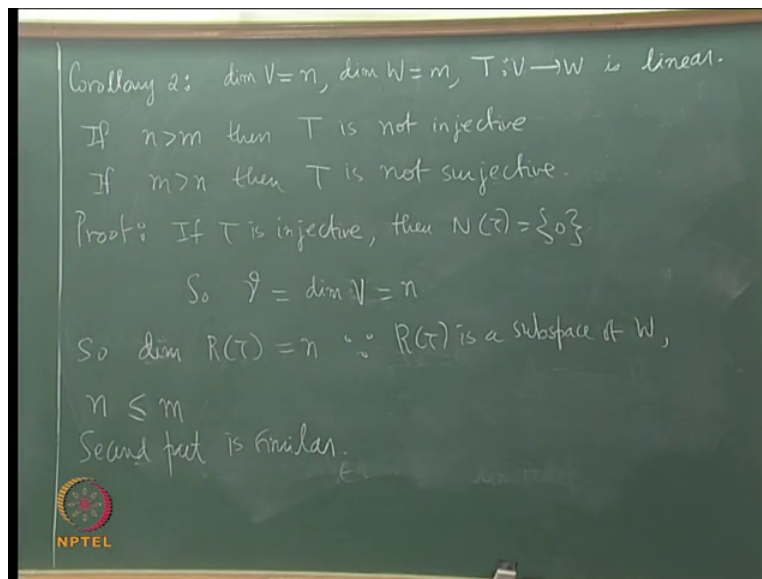 Corollary 2: dim V = n, dim W = m, T: V → W is linear.
If n > m then T is not injective
If m > n then T is not surjective.
Proof: If T is injective, then N(T) = {0}.
So r = dim V = n
So dim R(T) = n ∵ R(T) is a subspace of W,
n ≤ m
Second part is similar.
NPTEL